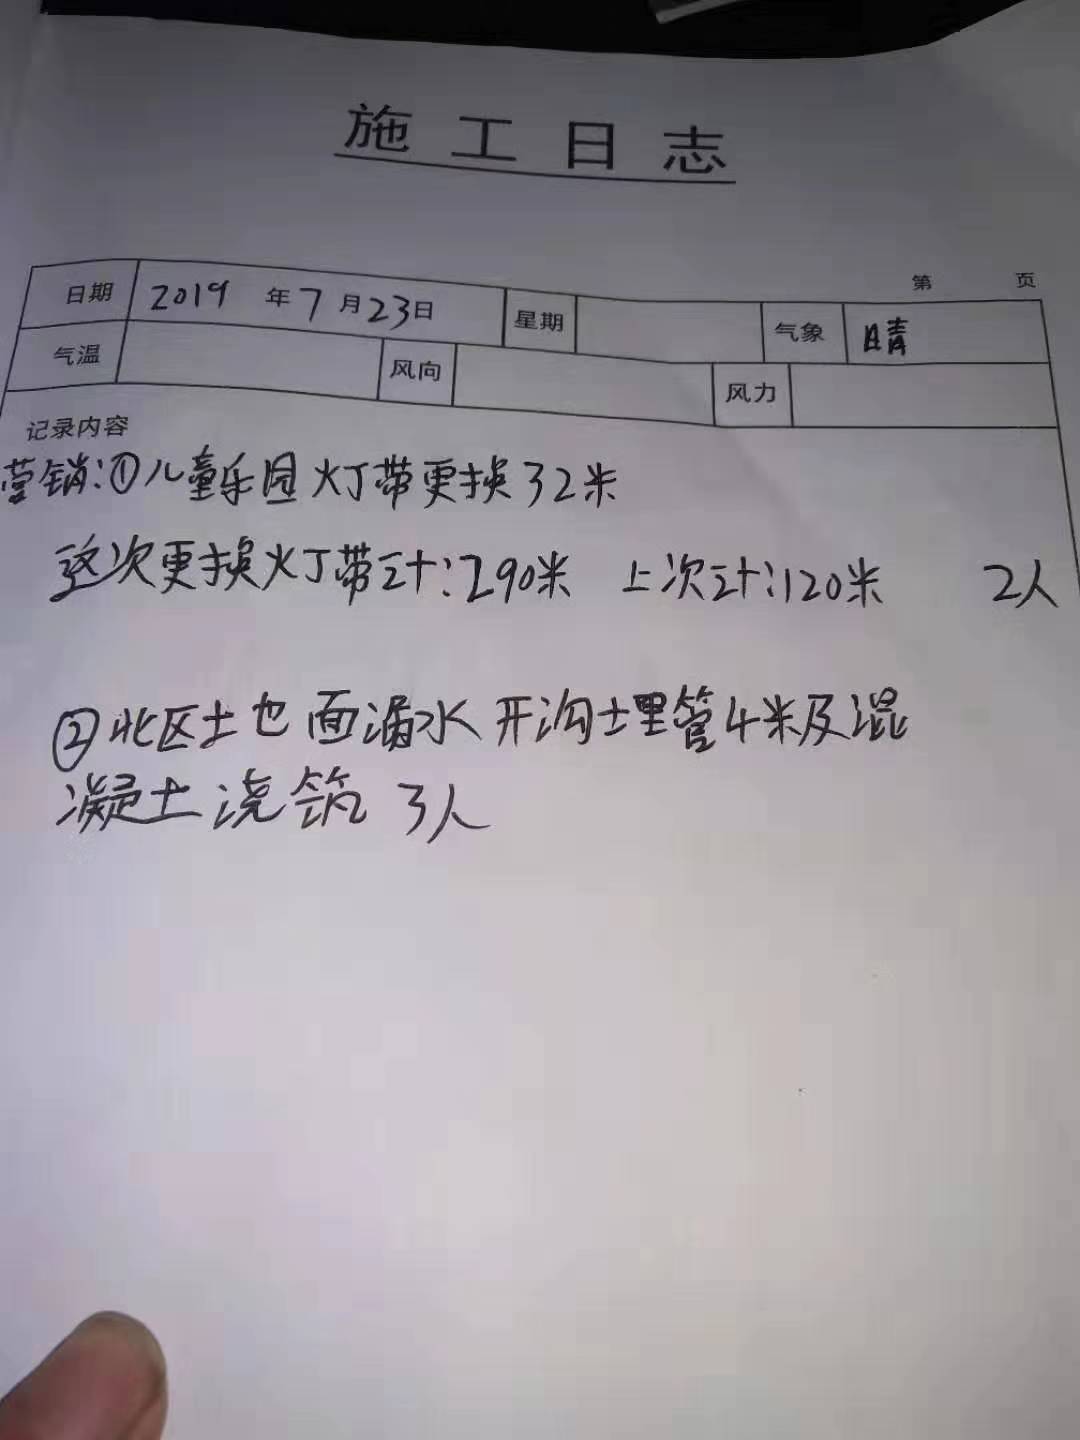 施工日志
第 页
日期 2019年7月23日 星期 气象 晴
气温 风向 风力
记录内容
营销:①儿童乐园灯带更换32米
这次更换灯带计:290米 上次计:120米 2人
②北区地面漏水开沟埋管4米及混
凝土浇筑 3人